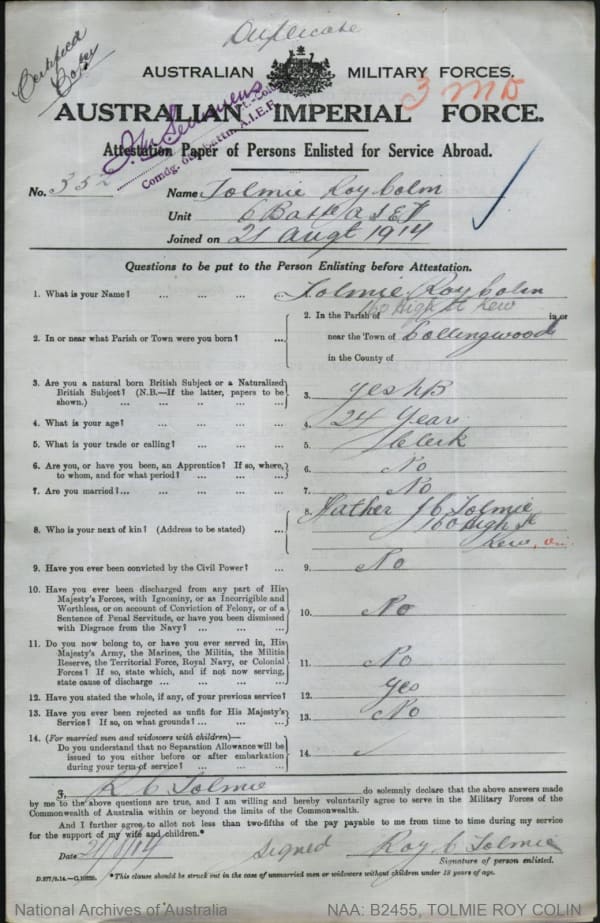 Duplicate
Certified
Copy
AUSTRALIAN MILITARY FORCES.
3 MD
AUSTRALIAN IMPERIAL FORCE.
Attestation Paper of Persons Enlisted for Service Abroad.
Comdg. Battn. A.I.E.F.
No. 352 Name Tolmie Roy Colin
Unit 6 Batt A I E F
Joined on 21 Augt 1914
Questions to be put to the Person Enlisting before Attestation.
1. What is your Name? ... ... ... ... Tolmie Roy Colin
160 High St Kew
2. In or near what Parish or Town were you born? ... 2. In the Parish of in or
near the Town of Collingwood
in the County of
3. Are you a natural born British Subject or a Naturalized
British Subject? (N.B.—If the latter, papers to be
shown.) ... ... ... ... 3. yes NB
4. What is your age? ... ... ... 4. 24 Years
5. What is your trade or calling? ... ... ... 5. Clerk
6. Are you, or have you been, an Apprentice? If so, where,
to whom, and for what period? ... ... ... 6. No
7. Are you married? ... ... ... ... 7. No
8. Who is your next of kin? (Address to be stated) ... 8. Father J C Tolmie
160 High St
Kew, Vic.
9. Have you ever been convicted by the Civil Power? ... 9. No
10. Have you ever been discharged from any part of His
Majesty's Forces, with Ignominy, or as Incorrigible and
Worthless, or on account of Conviction of Felony, or of a
Sentence of Penal Servitude, or have you been dismissed
with Disgrace from the Navy? ... ... ... 10. No
11. Do you now belong to, or have you ever served in, His
Majesty's Army, the Marines, the Militia, the Militia
Reserve, the Territorial Force, Royal Navy, or Colonial
Forces? If so, state which, and if not now serving,
state cause of discharge ... ... ... ... 11. No
12. Have you stated the whole, if any, of your previous service? 12. Yes
13. Have you ever been rejected as unfit for His Majesty's
Service? If so, on what grounds? ... ... ... 13. No
14. (For married men and widowers with children)—
Do you understand that no Separation Allowance will be
issued to you either before or after embarkation
during your term of service? ... ... ... 14.
I, R C Tolmie do solemnly declare that the above answers made
by me to the above questions are true, and I am willing and hereby voluntarily agree to serve in the Military Forces of the
Commonwealth of Australia within or beyond the limits of the Commonwealth.
And I further agree to allot not less than two-fifths of the pay payable to me from time to time during my service
for the support of my wife and children.*
Date signed Roy C Tolmie
Signature of person enlisted.
*This clause should be struck out in the case of unmarried men or widowers without children under 18 years of age.
National Archives of Australia NAA: B2455, TOLMIE ROY COLIN